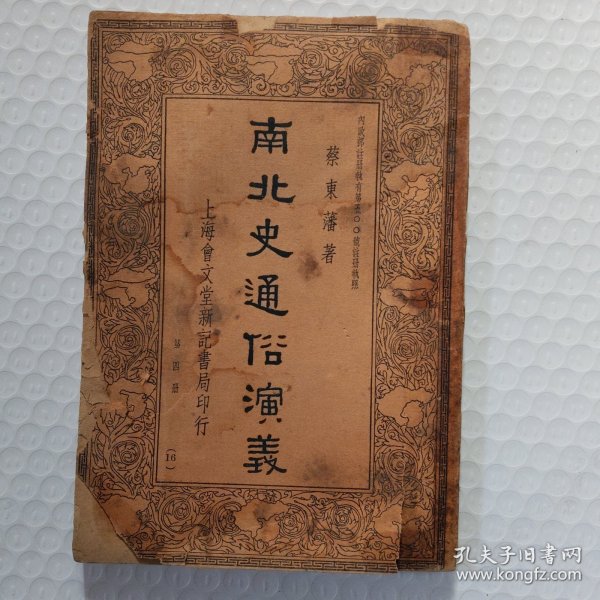 內政部註冊執有第五〇〇號註冊執照
蔡東藩著
南北史通俗演義
上海會文堂新記書局印行
第四冊
16)
孔夫子旧書网
www.kongfz.com